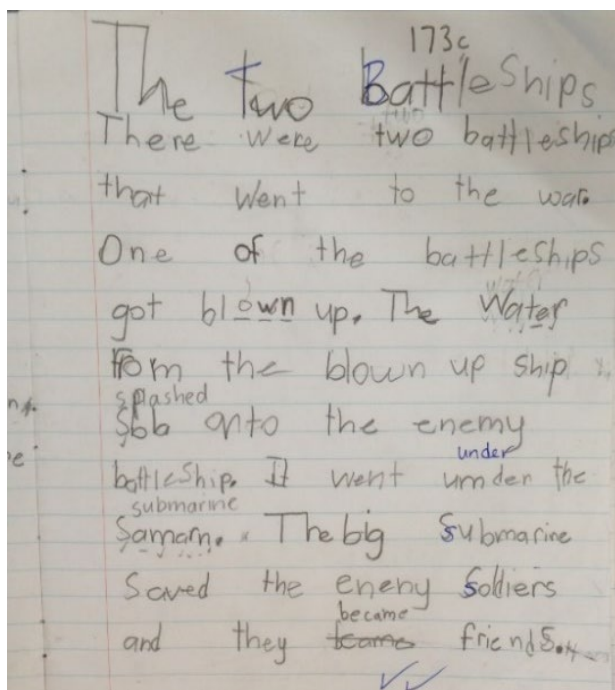 173c
The Two BattleShips
There were two battleships
that went to the war.
One of the battleships
got blown up. The Water
from the blown up ship
splashed
Sbb onto the enemy
under
battleShip. It went umder the
submarine
Samarn. The big Submarine
Saved the eneny Soldiers
became
and they friends.